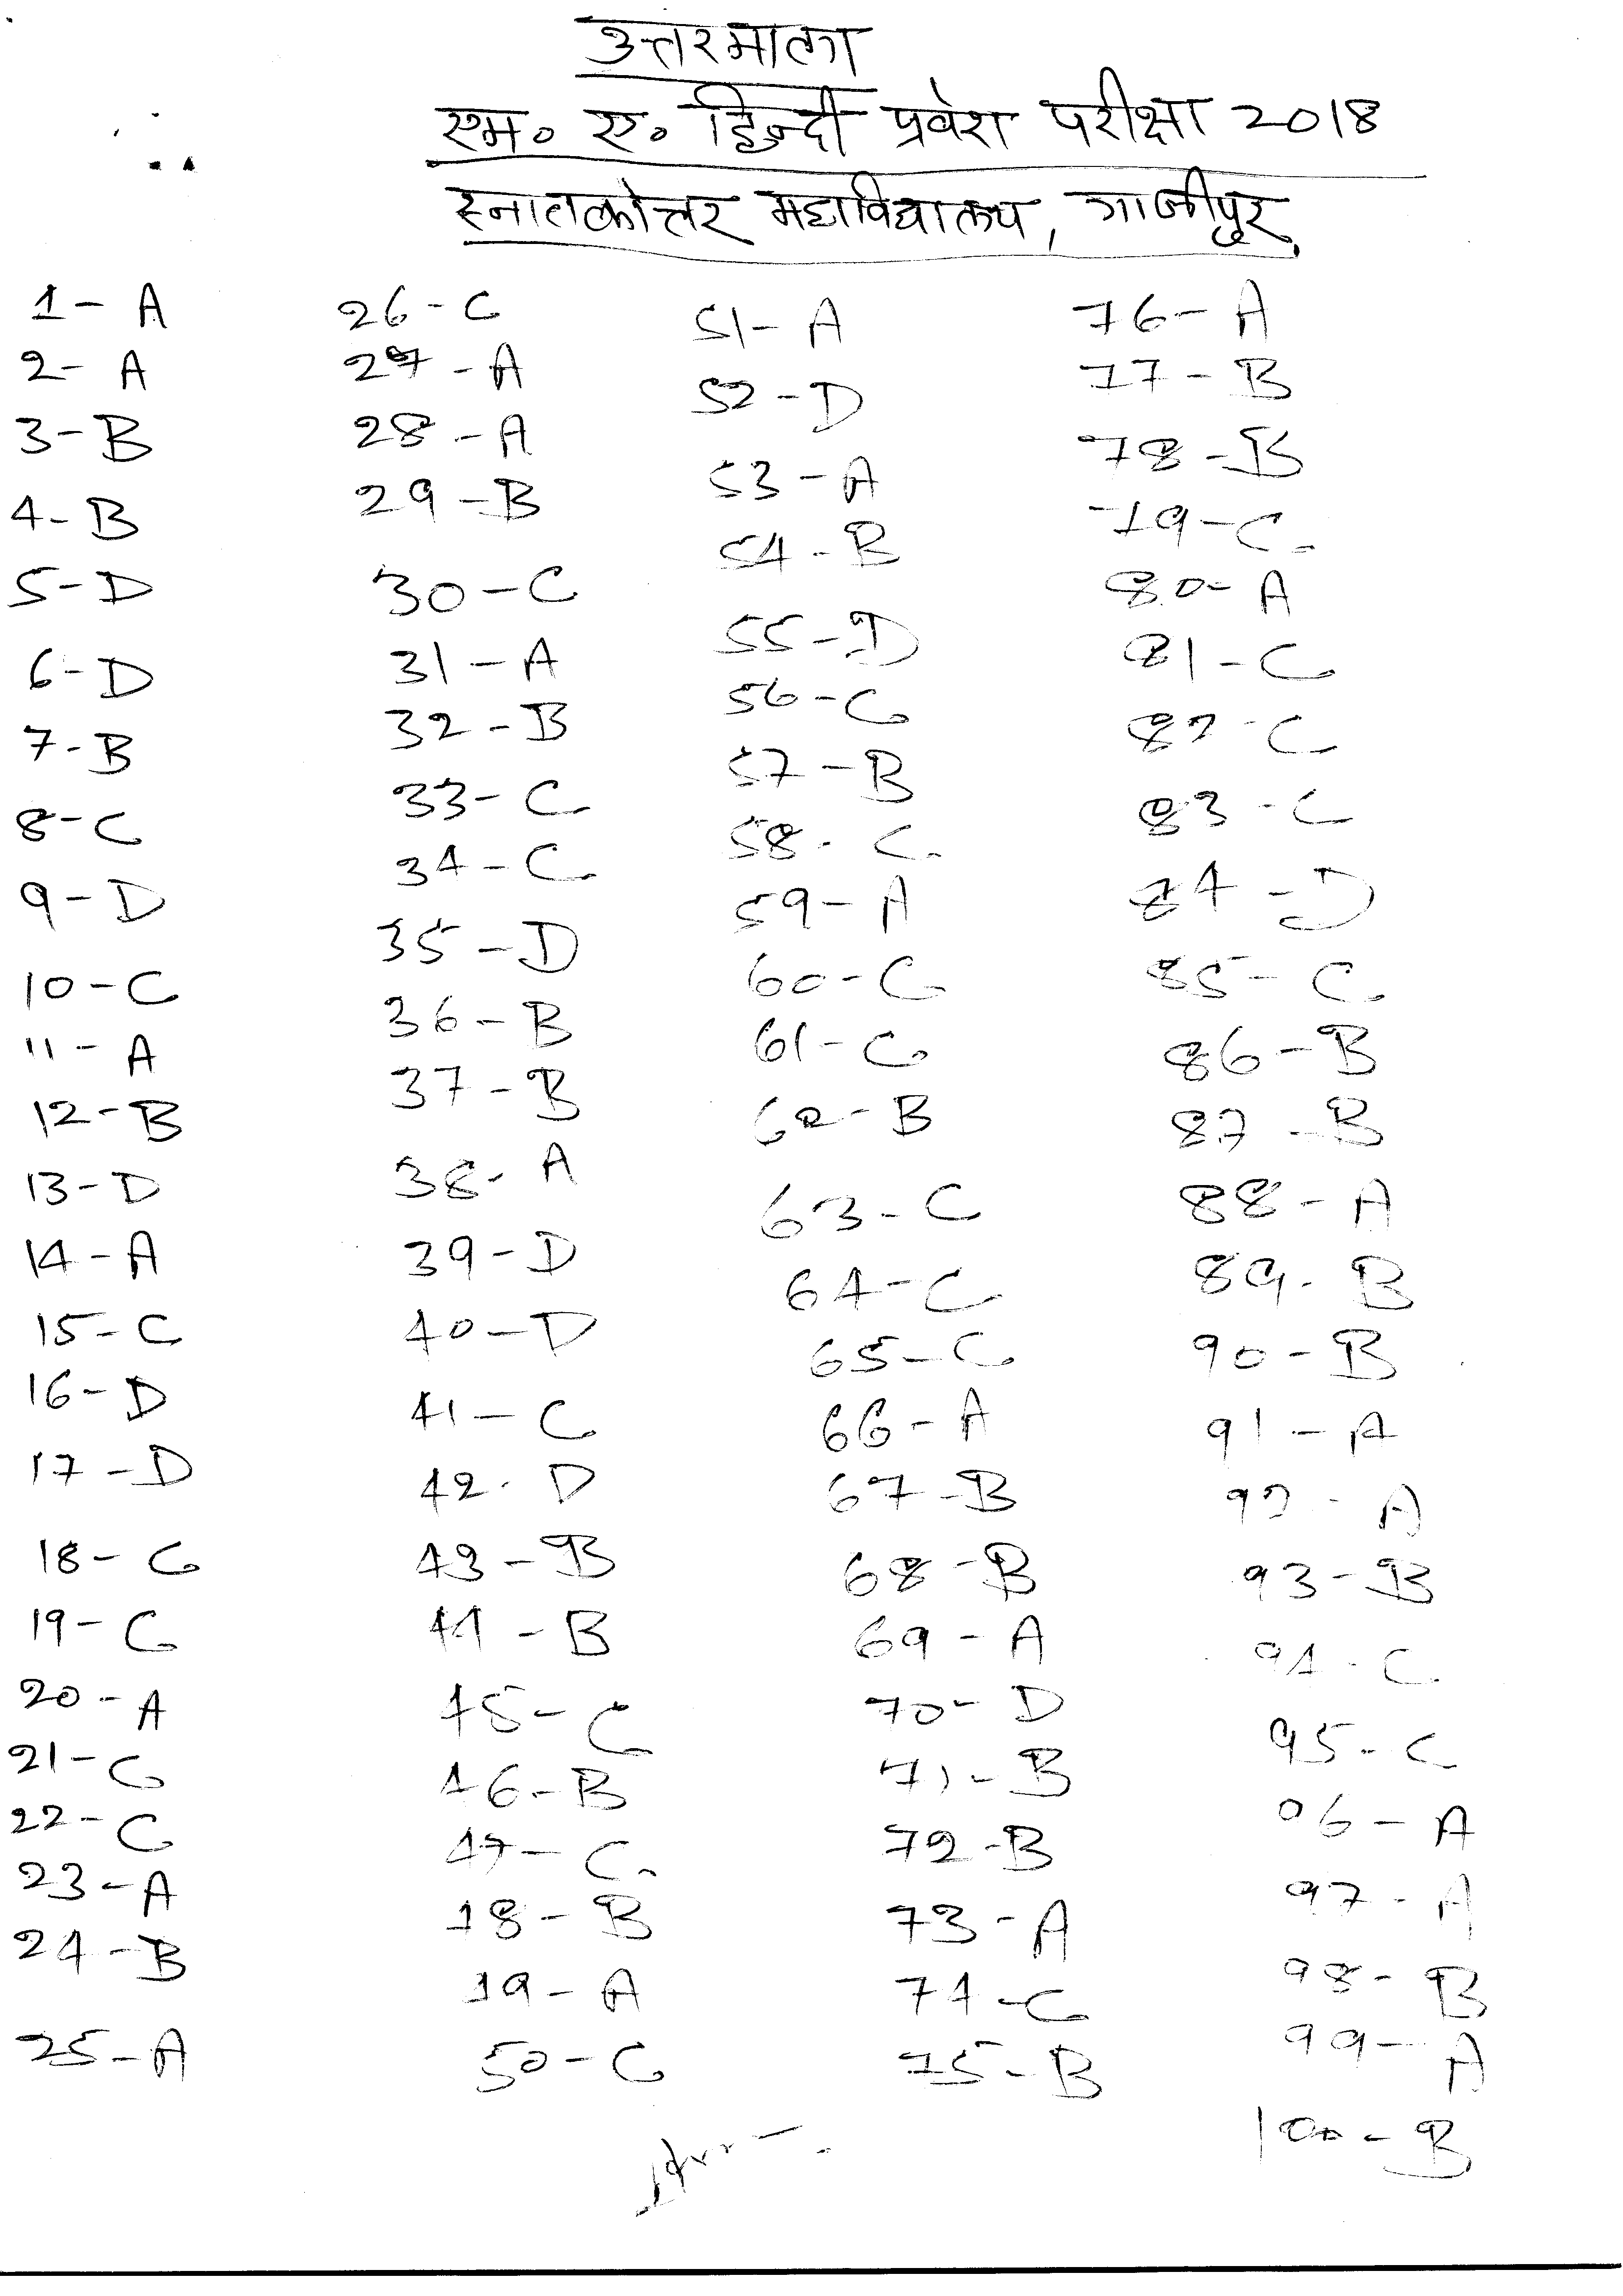 उत्तरमाला
एम० ए० हिन्दी प्रवेश परीक्षा 2018
स्नातकोत्तर महाविद्यालय, गाजीपुर
1- A
2- A
3-B
4-B
5-D
6-D
7-B
8-C
9-D
10-C
11-A
12-B
13-D
14-A
15-C
16-D
17-D
18-C
19-C
20-A
21-C
22-C
23-A
24-B
25-A
26-C
27-A
28-A
29-B
30-C
31-A
32-B
33-C
34-C
35-D
36-B
37-B
38-A
39-D
40-D
41-C
42-D
43-B
44-B
45-C
46-B
47-C
48-B
49-A
50-C
51-A
52-D
53-A
54-B
55-D
56-C
57-B
58-C
59-A
60-C
61-C
62-B
63-C
64-C
65-C
66-A
67-B
68-B
69-A
70-D
71-B
72-B
73-A
74-C
75-B
76-A
77-B
78-B
79-C
80-A
81-C
82-C
83-C
84-D
85-C
86-B
87-B
88-A
89-B
90-B
91-A
92-A
93-B
94-C
95-C
96-A
97-A
98-B
99-A
100-B